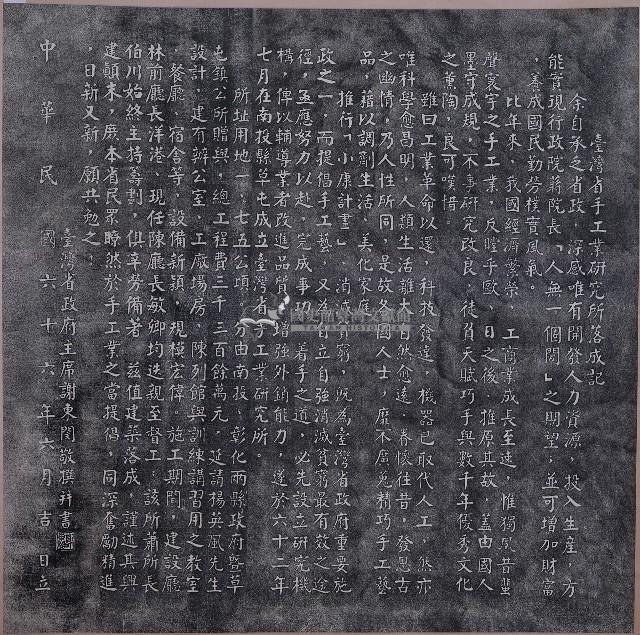 臺灣省手工業研究所落成記
余自承乏省政,深感唯有開發人力資源,投入生產,方
能實現行政院蔣院長「人無一個閒」之期望,並可增加財富
,養成國民勤勞樸實風氣。
比年來,我國經濟繁榮,工商業成長至速,惟獨夙昔蜚
聲寰宇之手工業,反瞠乎歐日之後,推原其故,蓋由國人
墨守成規,不事研究改良,徒負天賦巧手與數千年優秀文化
之薰陶,良可嘆惜。
雖曰工業革命以還,科技發達,機器已取代人工,然亦
唯科學愈昌明,人類生活離大自然愈遠,眷懷往昔,發思古
之幽情,乃人性所同,是故各國人士,靡不廣蒐精巧手工藝
品,藉以調劑生活,美化家庭。
推行「小康計畫」,消滅貧窮,既為臺灣省政府重要施
政之一,而提倡手工藝,又為自立自強消滅貧窮最有效之途
徑,亟應努力以赴,完成事功。着手之道,必先設立研究機
構,俾以輔導業者改進品質,增強外銷能力,遂於六十二年
七月在南投縣草屯成立臺灣省手工業研究所。
所址用地一.七五公頃,分由南投、彰化兩縣政府暨草
屯鎮公所贈與,總工程費三千三百餘萬元,延請楊英風先生
設計,建有辦公室、工廠場房、陳列館與訓練講習用之教室
、餐廳、宿舍等,設備新穎,規模宏偉。施工期間,建設廳
林前廳長洋港、現任陳廳長敏卿均迭親至督工,該所蕭所長
伯川始終主持籌劃,俱辛勞備著。茲值建築落成,謹述其興
建顛末,庶本省民眾瞭然於手工業之當提倡,同深奮勵精進
,日新又新,願共勉之。
臺灣省政府主席謝東閔敬撰并書
中華民國六十六年六月吉日立
國立臺灣文獻館
TAIWAN HISTORICA